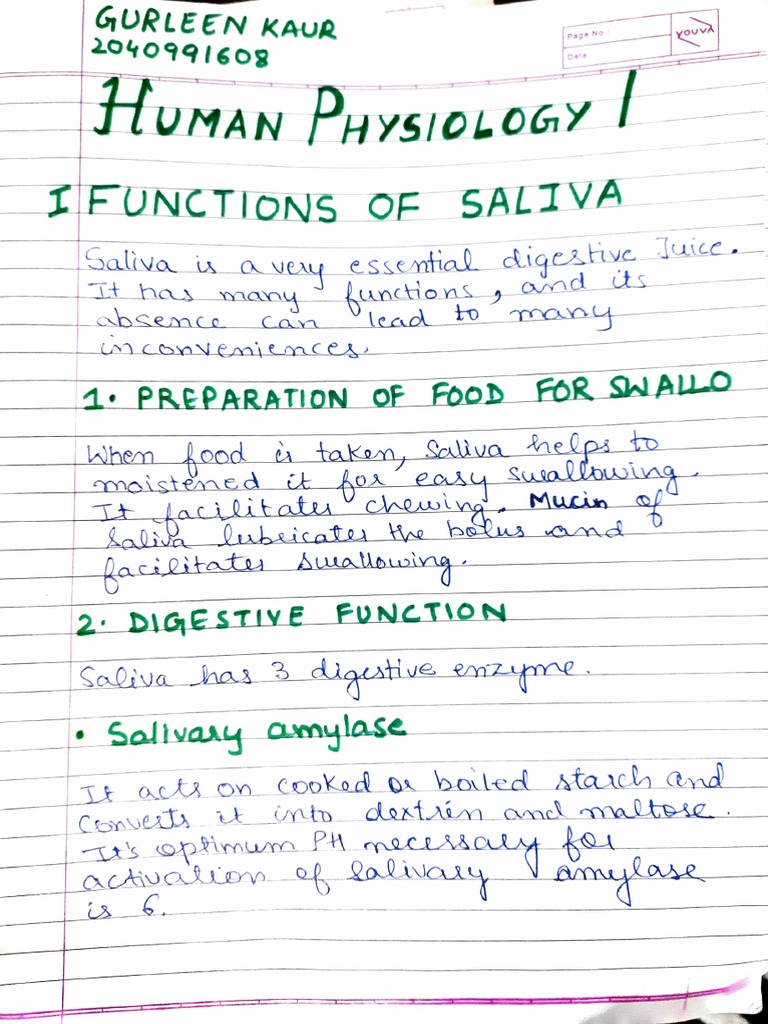 GURLEEN KAUR
2040991608
Page No
Date
YOUVA
HUMAN PHYSIOLOGY I
I FUNCTIONS OF SALIVA
Saliva is a very essential digestive Juice.
It has many functions, and its
absence can lead to many
inconveniences.
1. PREPARATION OF FOOD FOR SWALLO
When food is taken, Saliva helps to
moistened it for easy swallowing.
It facilitates chewing. Mucin of
Saliva lubricates the bolus and
facilitates swallowing.
2. DIGESTIVE FUNCTION
Saliva has 3 digestive enzyme.
• Salivary amylase
It acts on cooked or boiled starch and
converts it into dextrin and maltose.
It's optimum PH necessary for
activation of Salivary amylase
is 6.